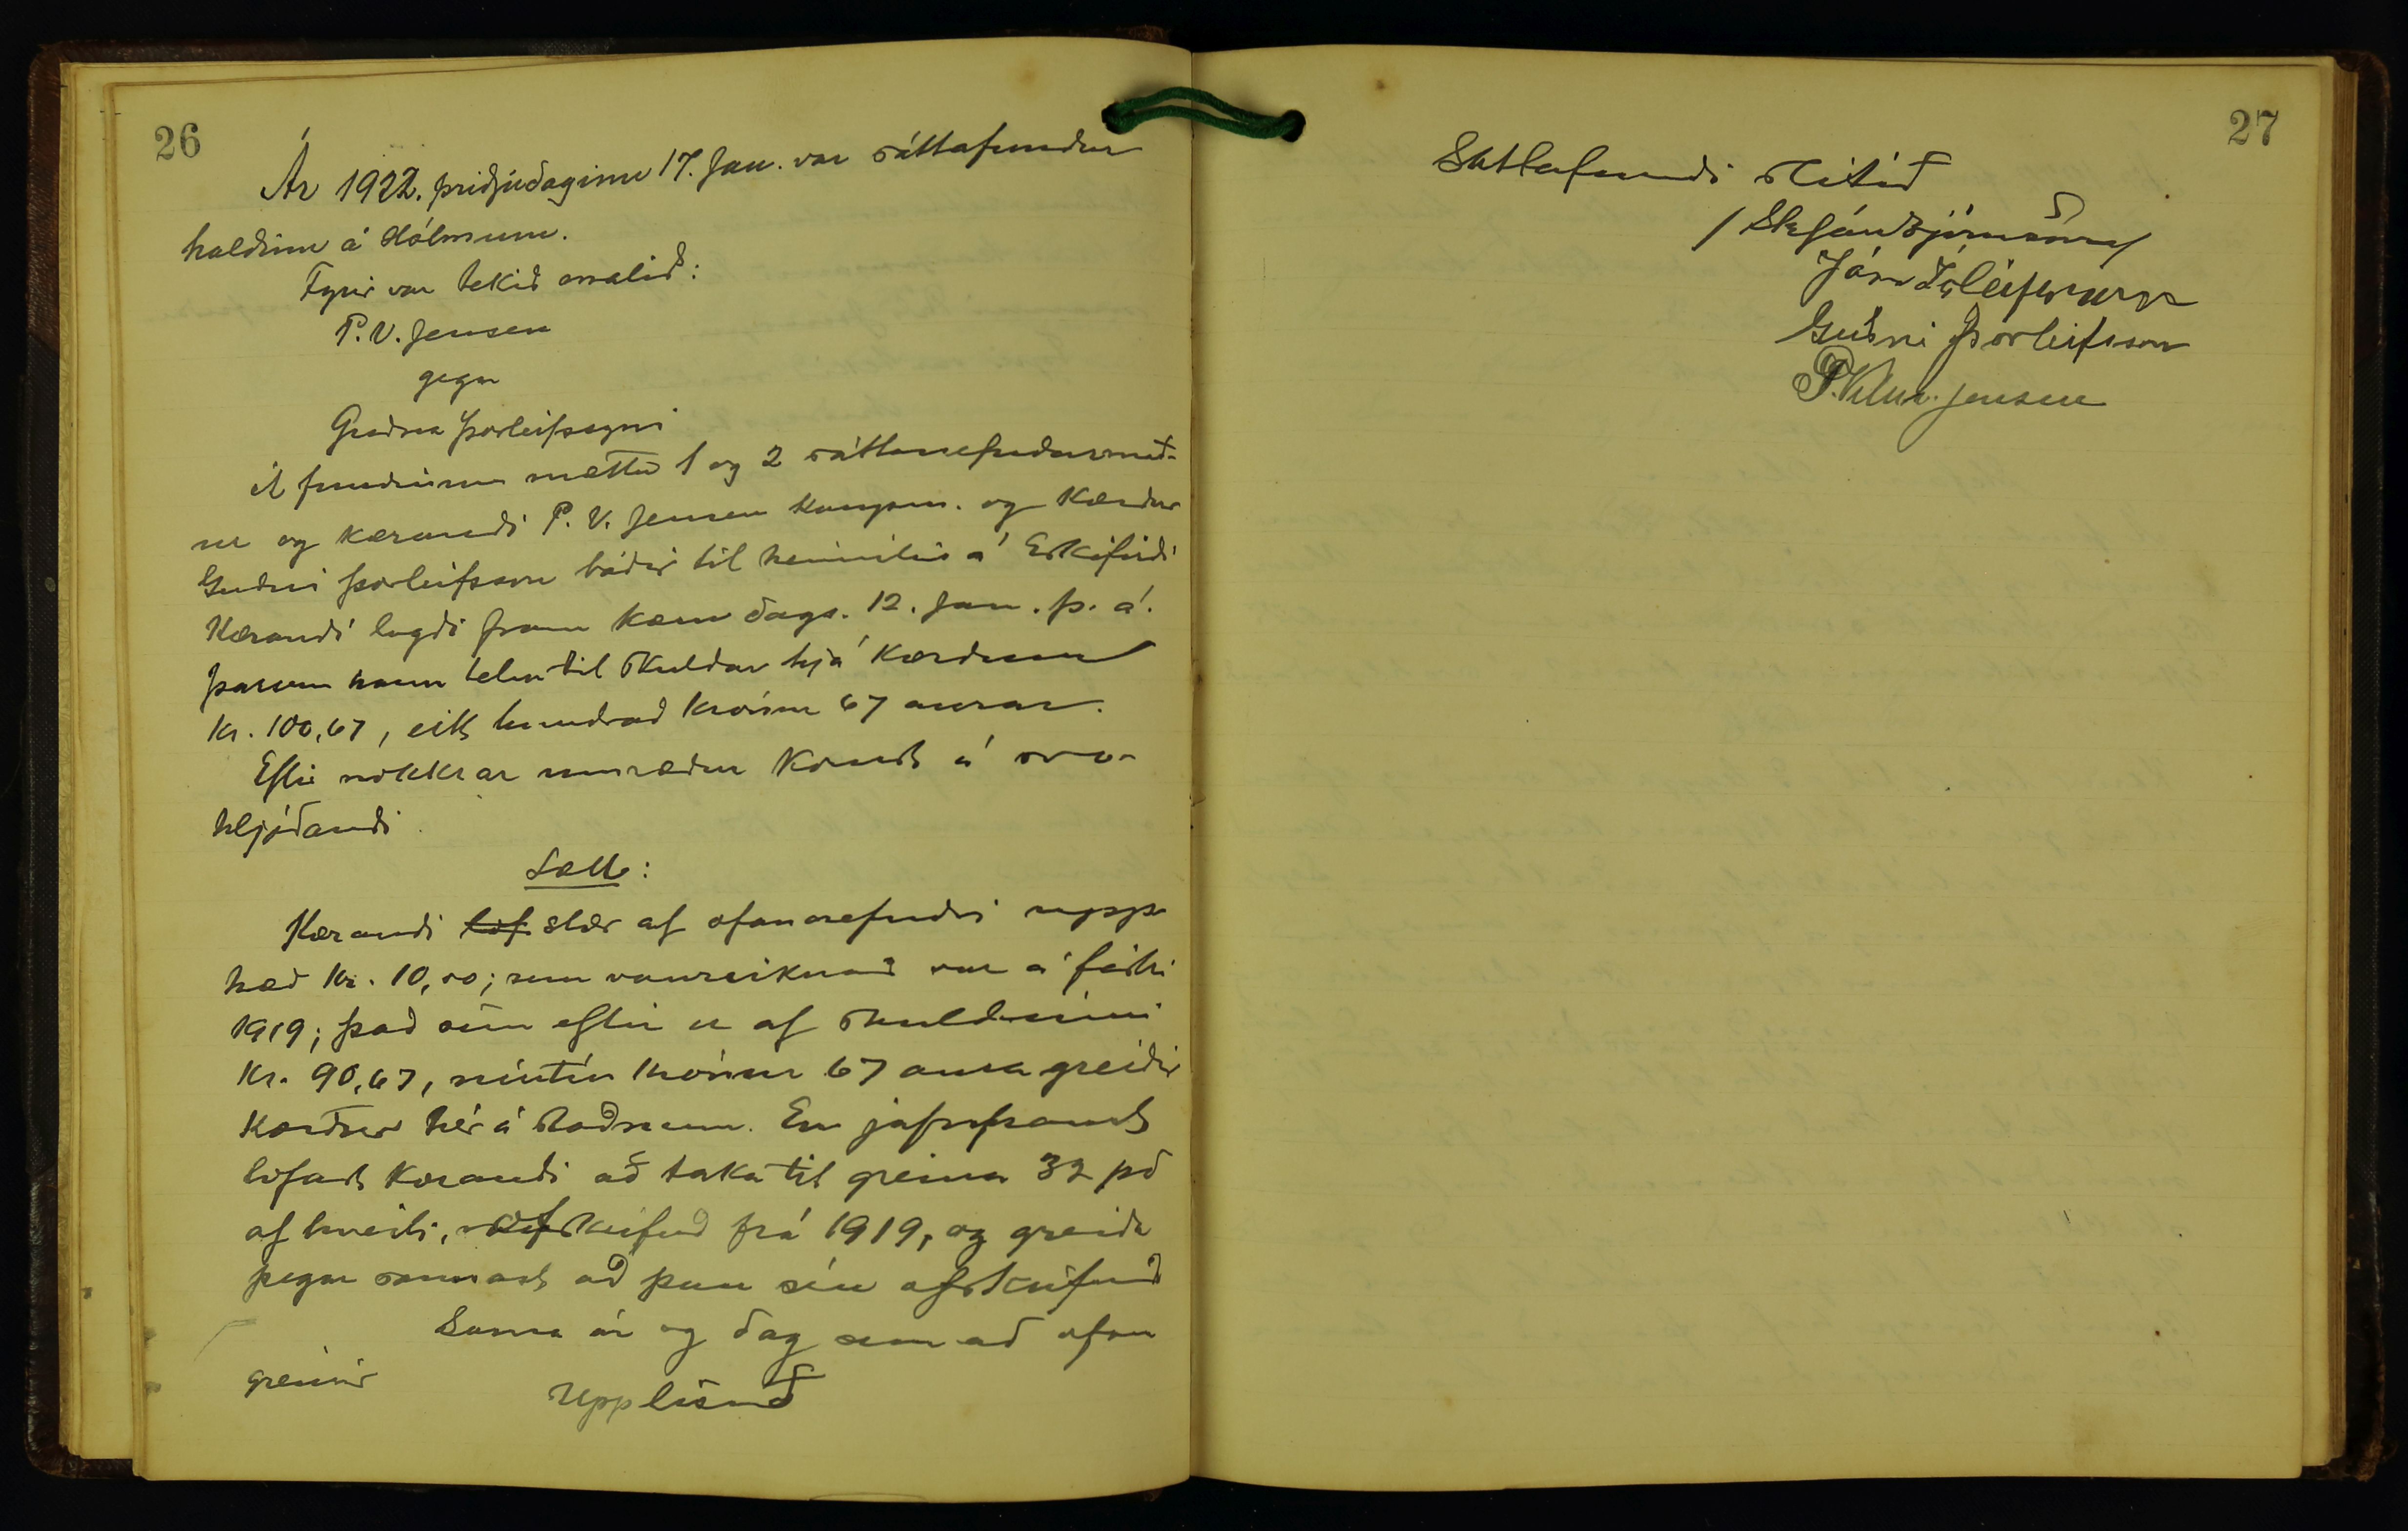 26
Ár 1922. þriðjudaginn 17. Jan. var sáttafundur
haldinn á Hólmum.
Fyrir var tekið málið:
P. V. Jensen
gegn
Guðna Þorleifssyni
Á fundinum mættu 1 og 2 sáttanefndarmað-
ur og kærandi P. V. Jensen kaupm. og Kærður
Guðni Þorleifsson báðir til heimilis á Eskifirði
Kærandi lagði fram kæru dags. 12. Jan. þ. á.
þarsem hann telur til skuldar hjá Kærðum
Kr. 100,67, eitt hundrað krónur 67 aurar.
Eftir nokkrar umræður komst á svo-
hljóðandi
Sætt:
Kærandi lof slær af ofannefndri upp-
hæð Kr. 10,00; sem vanreiknað var á fæði
1919; það sem eftir er af skuldinni
Kr. 90,67, níutíu krónur 67 aura greiðir
Kærður hér á staðnum. En jafnframt
lofast Kærandi að taka til greina 32 pd
af hveiti, afskrifuð frá 1919, og greiða
þegar sannast að þau séu afskrifuð
Sama ár og dag sem að ofan
greinir
Upplesið
27
Sáttafundi slitið
Stefán Björnsson
Jón Ísleifsson
Guðni Þorleifsson
P. Vilm. Jensen